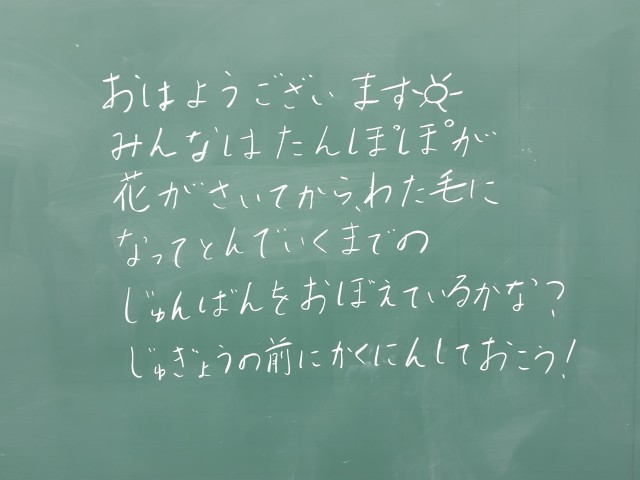 おはようございます☀
みんなはたんぽぽが
花がさいてから、わた毛に
なってとんでいくまでの
じゅんばんをおぼえているかな?
じゅぎょうの前にかくにんしておこう!